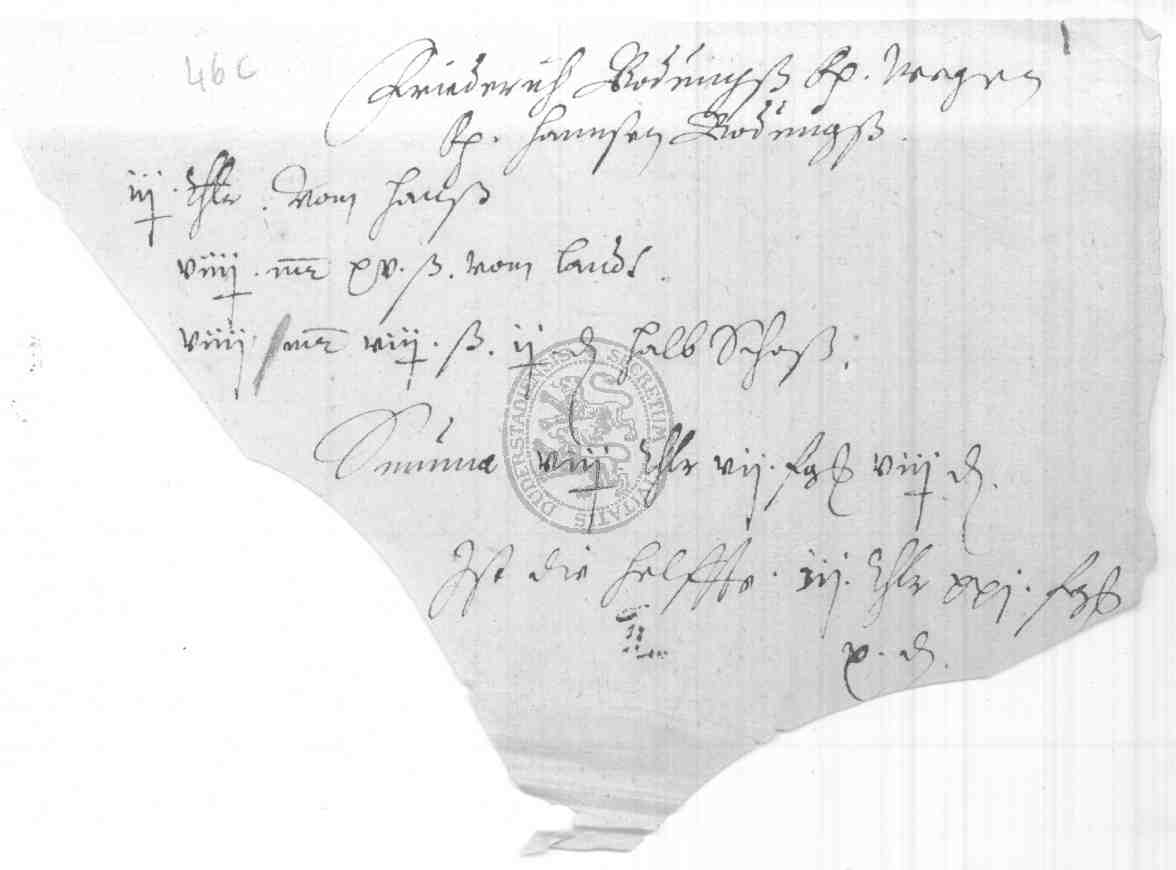 46c
1
Friederich Bodungß Rp. wegen
Rp. Hannsen Bodungß.
iij. thlr. Vom Hauß
viiij. mr xv. ß. vom lande.
viiij. mr viij. ß. ij d halb Schoß.
Summa viij thlr vij. fgß viij d.
Ist die helffte. iij. thlr xxj. fgß
x. d.
SECRETUM CIVITATIS DUDERSTADIENSIS